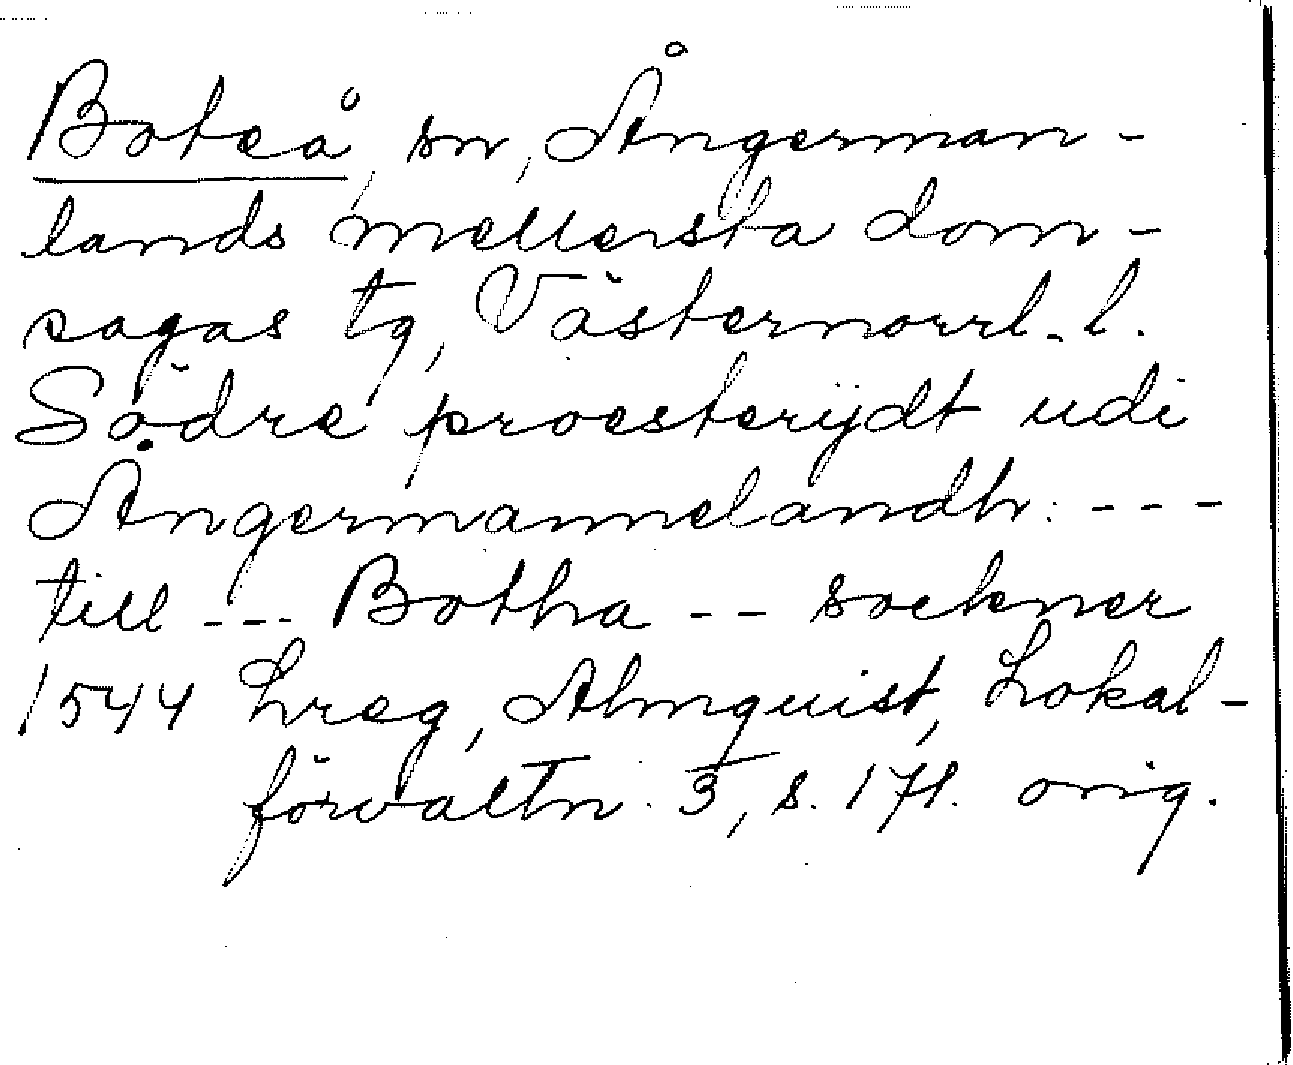 Boteå, sn, Ångerman-
lands mellersta dom-
sagas tg, Västernorrl. l.
Södre proesterijdt udi
Ångermannelandh: ---
till --- Botha -- sockner
1544 Lreg, Almquist, Lokal-
förvaltn. 3, s. 171. orig.